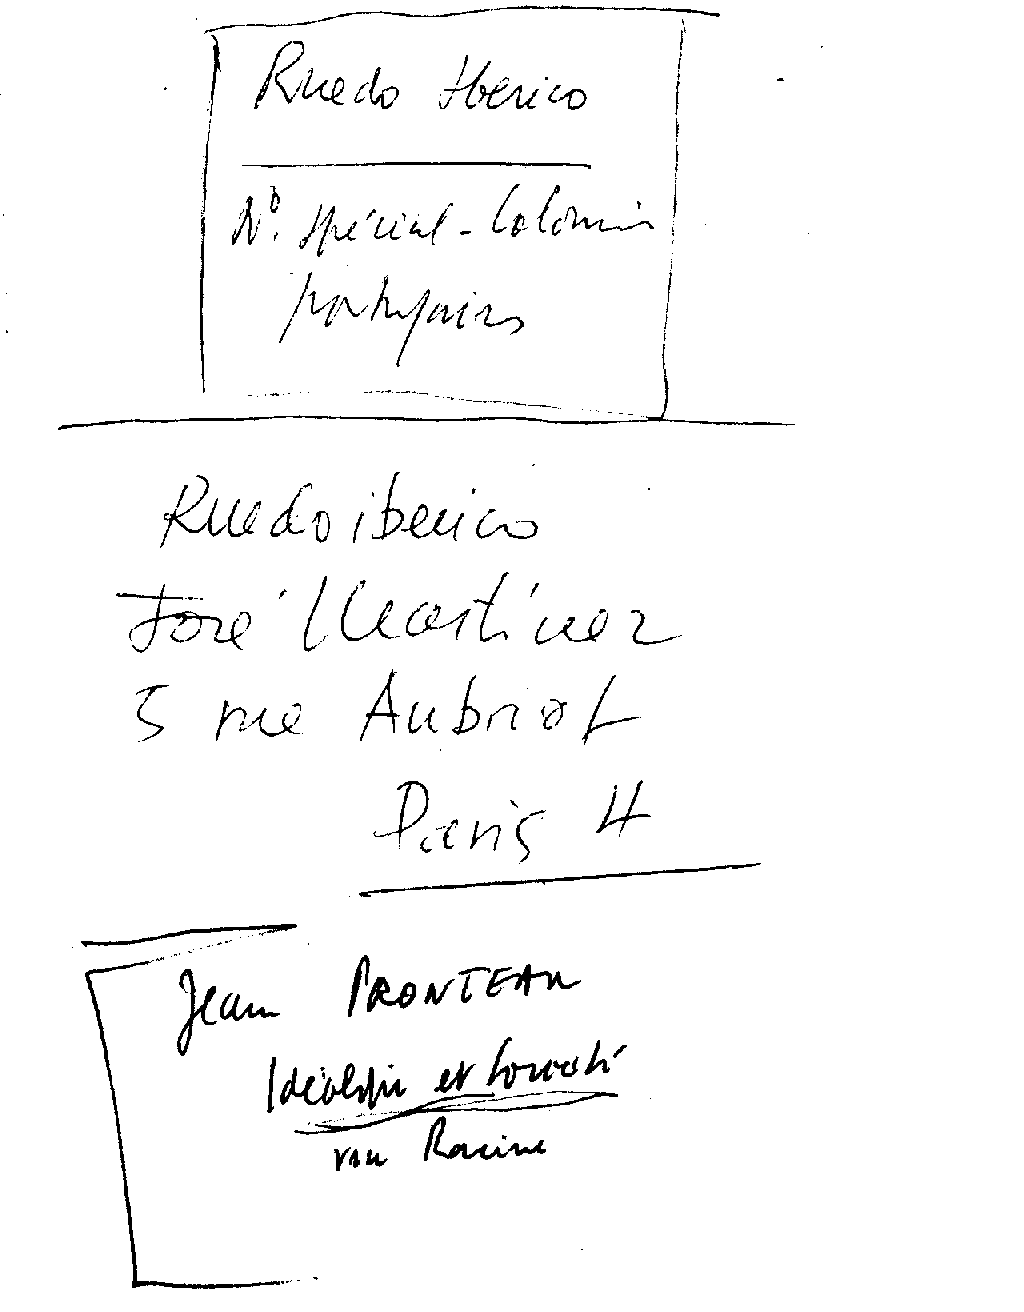 Ruedo Iberico
Nº. spécial - Colonies
portugaises
Ruedo iberico
José Martinez
5 rue Aubriot
Paris 4
Jean PRONTEAU
Idéologie et Société
rue Racine